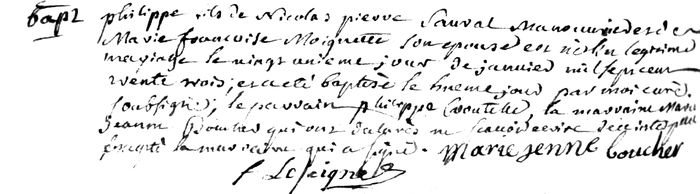 bapt philippe fils de Nicolas pierre Sauval Manouvrier et de
Marie francoise Moignette son epouse est né en legitime
mariage le vingt unieme jour de janvier mil sept cent
trente trois, et a eté baptisé le meme jour par moi curé
soubsigné, le parrain philippe la marraine Marie
Jeanne Boucher qui ont de ce interpellé
excepté la marraine qui a signé. Marie jenne boucher
f Leseigne